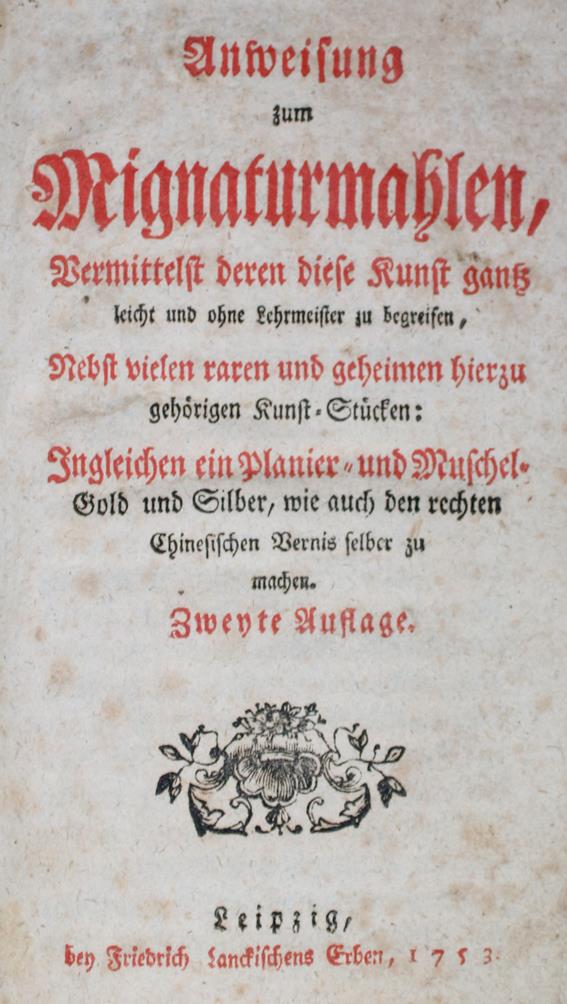 Anweisung
zum
Mignaturmahlen,
Vermittelst deren diese Kunst gantz
leicht und ohne Lehrmeister zu begreifen,
Nebst vielen raren und geheimen hierzu
gehörigen Kunst-Stücken:
Ingleichen ein Planier- und Muschel-
Gold und Silber, wie auch den rechten
Chinesischen Vernis selber zu
machen.
Zweyte Auflage.
Leipzig,
bey Friedrich Lanckischens Erben, 1753.